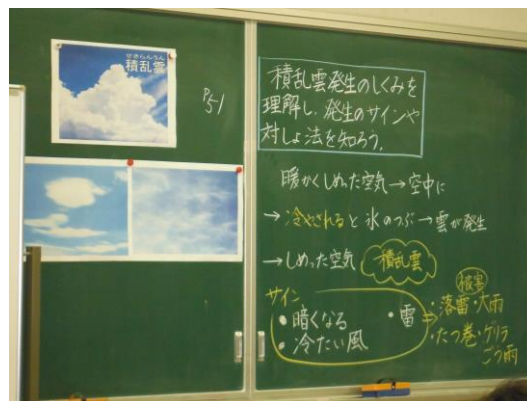 せきらんうん
積乱雲
P51
積乱雲発生のしくみを
理解し、発生のサインや
対しょ法を知ろう。
暖かくしめった空気→空中に
→冷やされると氷のつぶ→雲が発生
→しめった空気 積乱雲
サイン
・暗くなる ・雷
・冷たい風
被害
・落雷・大雨
・たつ巻・ゲリラ
ごう雨